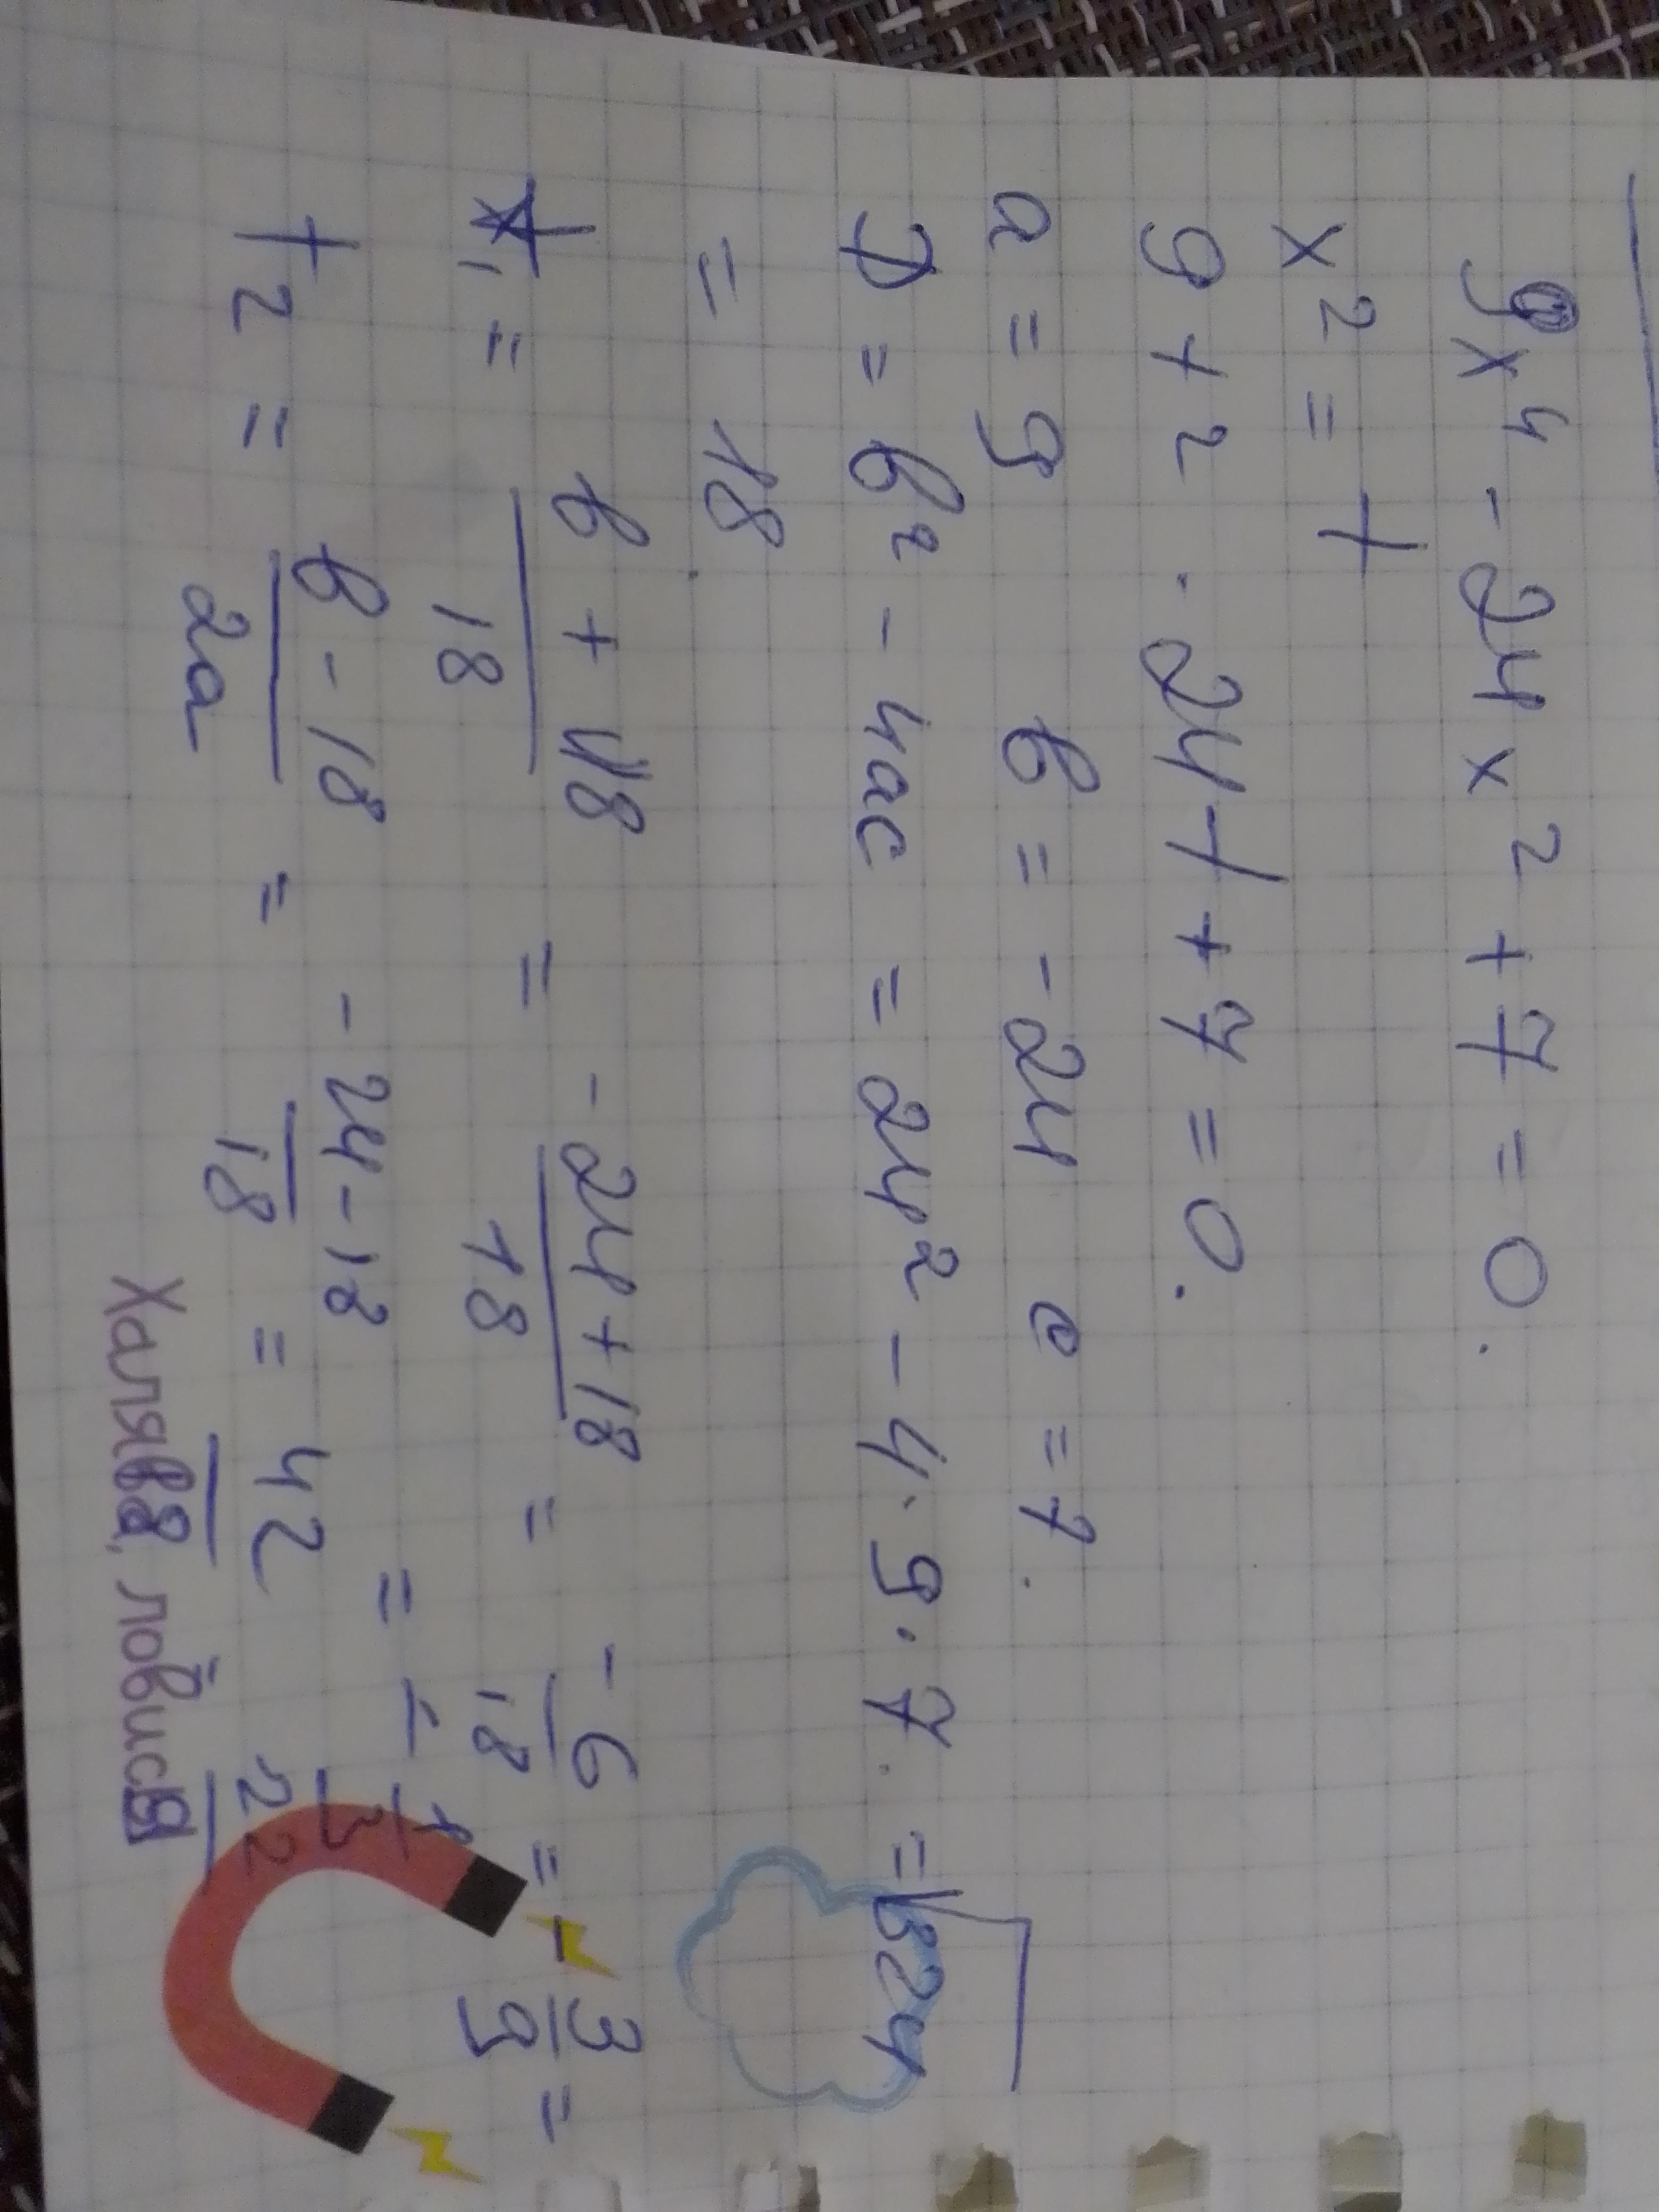 9x⁴ - 24x² + 7 = 0.
x² = t
9t² - 24t + 7 = 0.
a = 9 в = -24 c = 7.
D = в² - 4ac = 24² - 4 · 9 · 7. = √324
= 18.
t₁ = в + 18 / 18 = -24 + 18 / 18 = -6 / 18 = - 3 / 9 =
= - 1 / 3
t₂ = в - 18 / 2a = -24 - 18 / 18 = 42
Халява, ловися